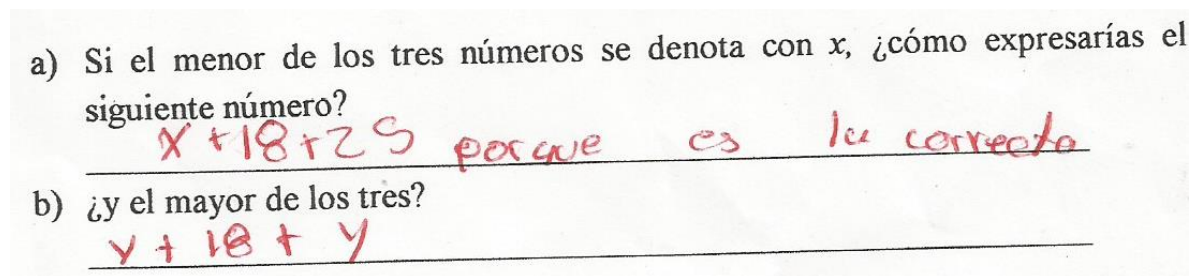 a) Si el menor de los tres números se denota con x, ¿cómo expresarías el
siguiente número?
x+18+25 porque es la correcta
b) ¿y el mayor de los tres?
y + 18 + y